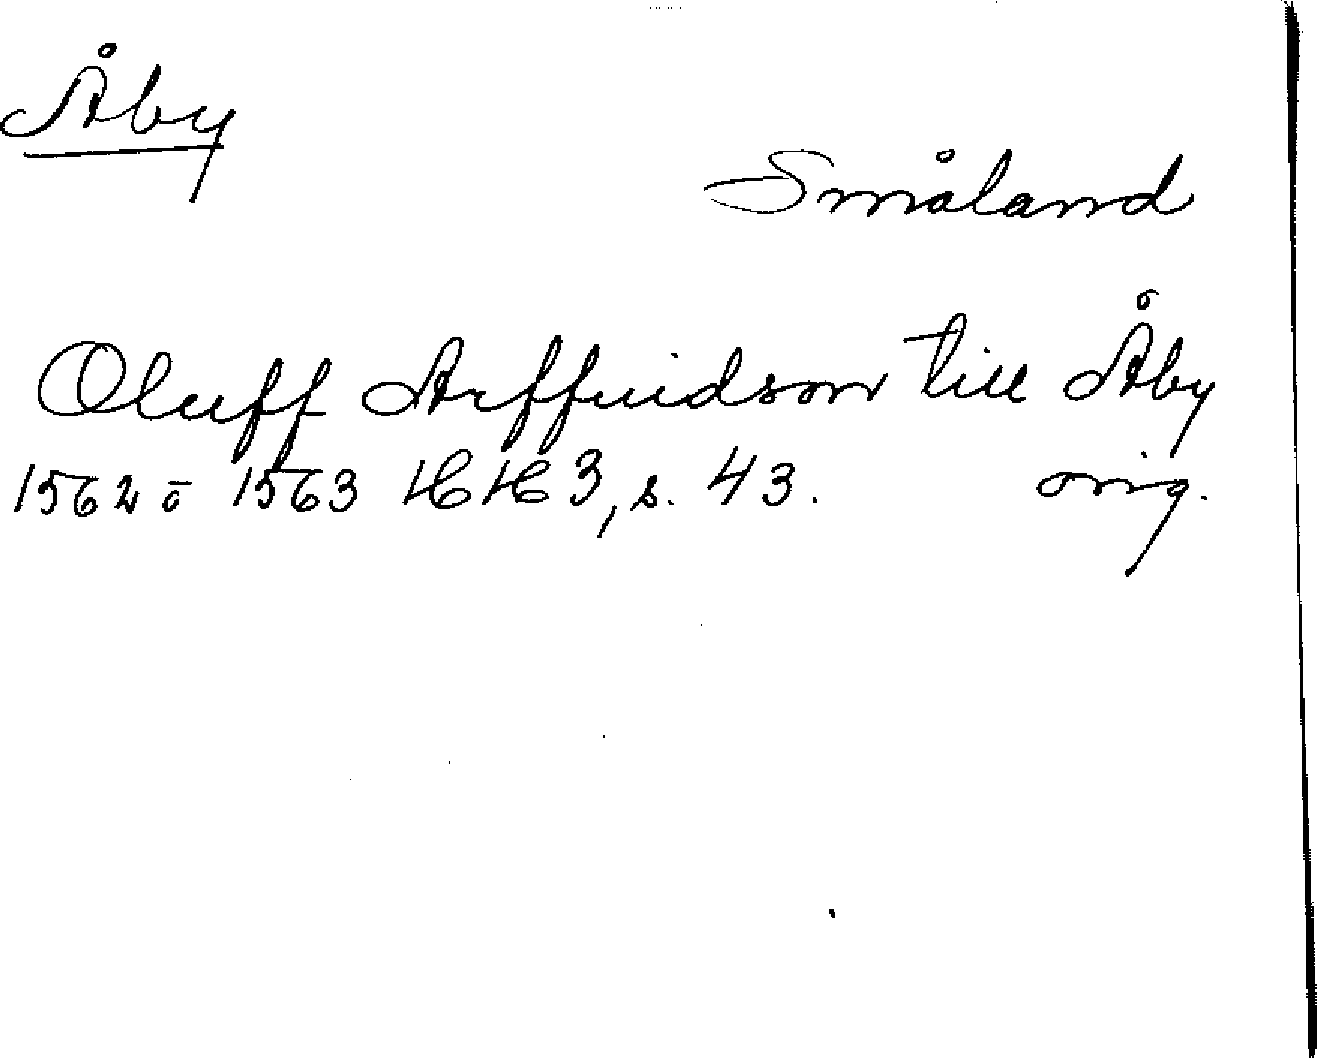 Åby
Småland
Oluff Arffuidson till Åby
1562 o 1563 HH 3, s. 43. orig.